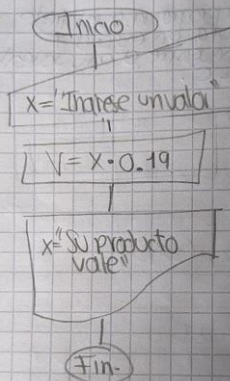 Inicio
X="Ingrese un valor"
V=X·0.19
x="Su producto
vale"
Fin.